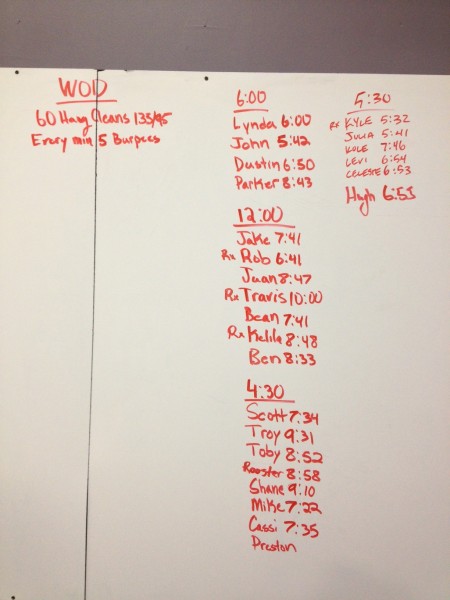 WOD
60 Hang Cleans 135/95
Every min 5 Burpees
6:00
Lynden 6:00
John 5:42
Dustin 6:50
Parker 8:43
5:30
RX KYLE 5:32
JULIA 5:41
KOLE 7:46
LEVI 6:54
CELESTE 6:53
Hugh 6:53
12:00
Jake 7:41
Rx Rob 6:41
Juan 8:47
Rx Travis 10:00
Bean 7:41
Rx Kalib 8:48
Ben 8:33
4:30
Scott 7:34
Troy 9:31
Toby 8:52
Rooster 8:58
Shane 9:10
Mike 7:22
Cassi 7:35
Preston